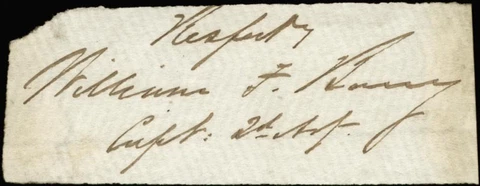 Respectly
William F. Barry
Capt: 2d Art.